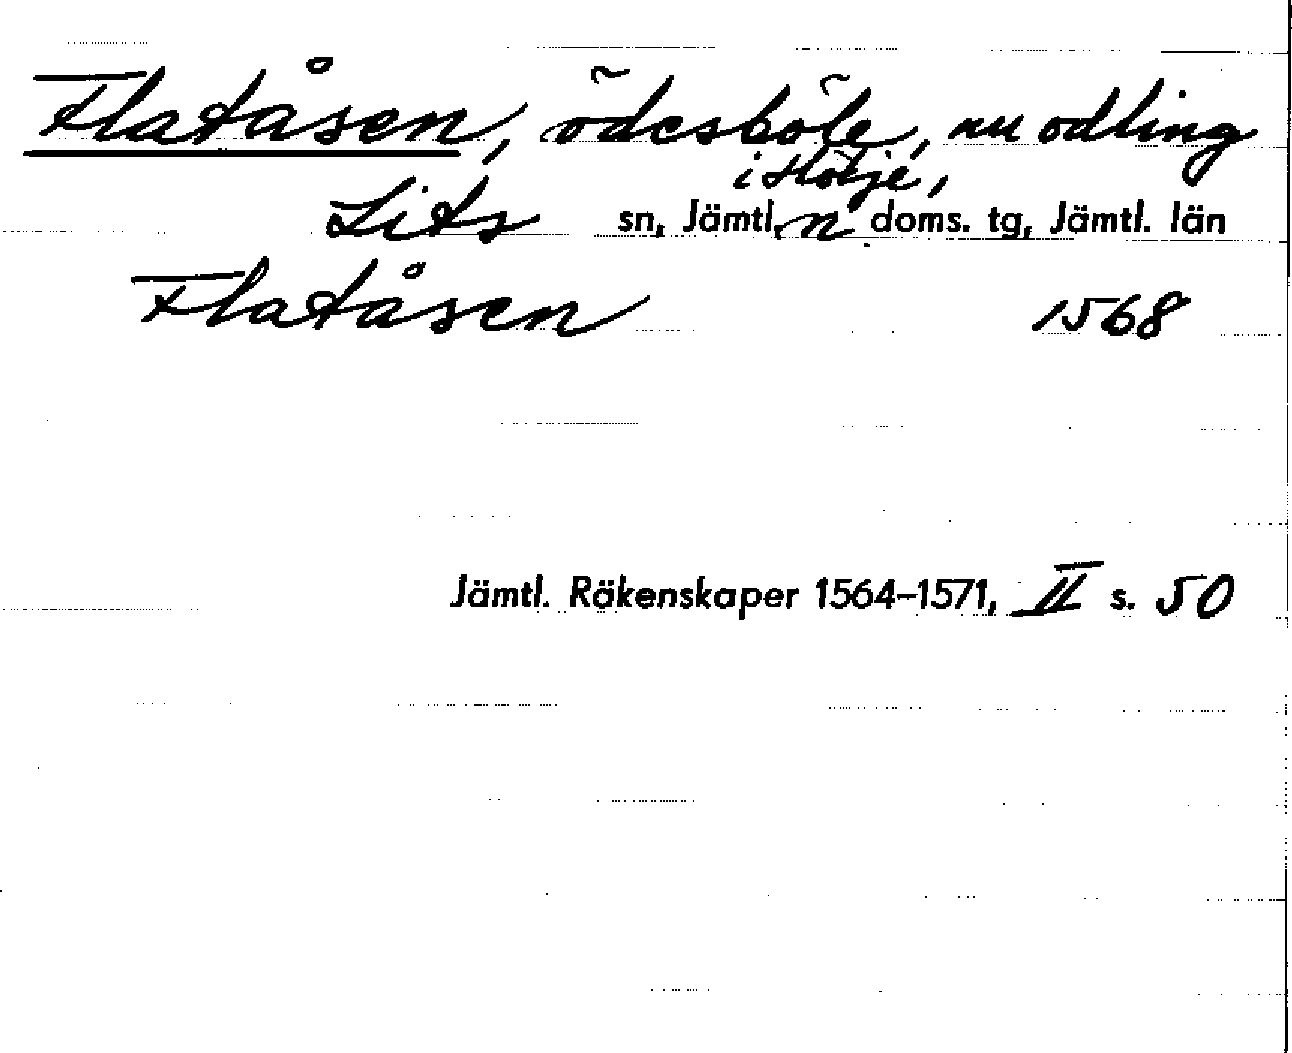 Flatåsen, ödesböle, nu odling
i Hölje,
Lits sn, Jämtl. n doms. tg, Jämtl. län
Flatåsen 1568
Jämtl. Räkenskaper 1564–1571, II s. 50